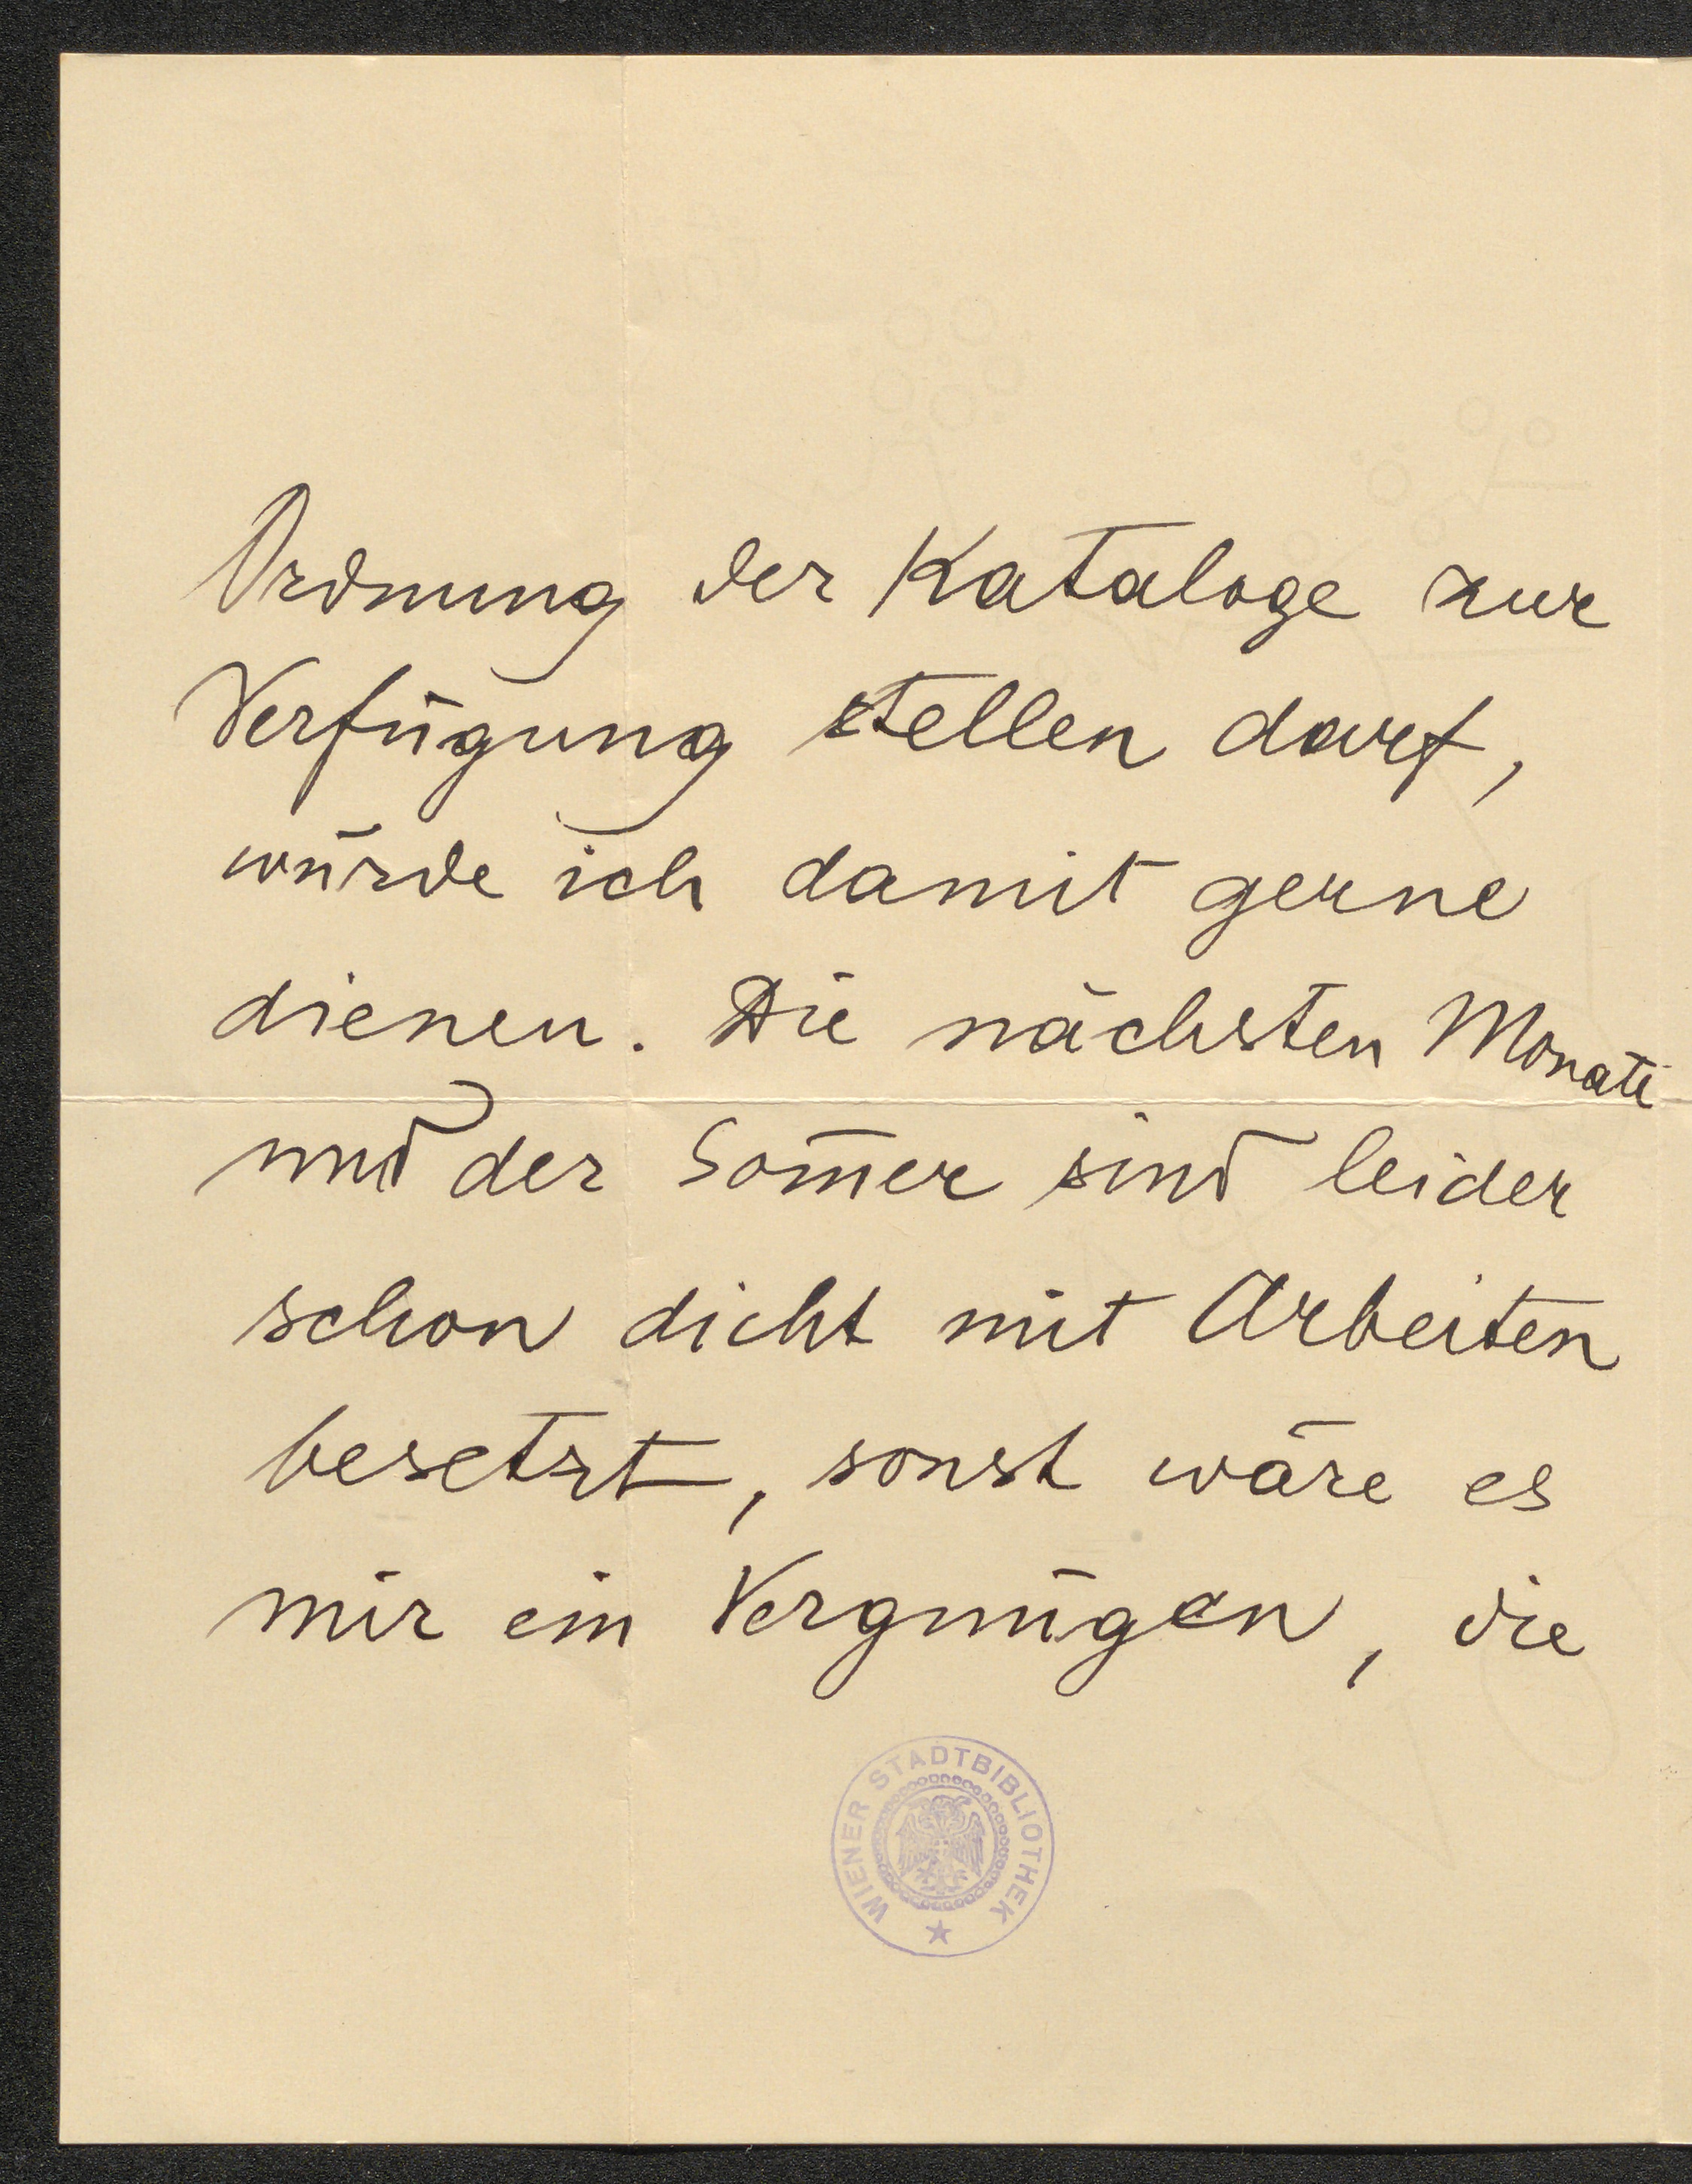 Ordnung der Kataloge zur
Verfügung stellen darf,
würde ich damit gerne
dienen. Die nächsten Monate
und der Som̄er sind leider
schon dicht mit Arbeiten
besetzt, sonst wäre es
mir ein Vergnügen, die
WIENER STADTBIBLIOTHEK